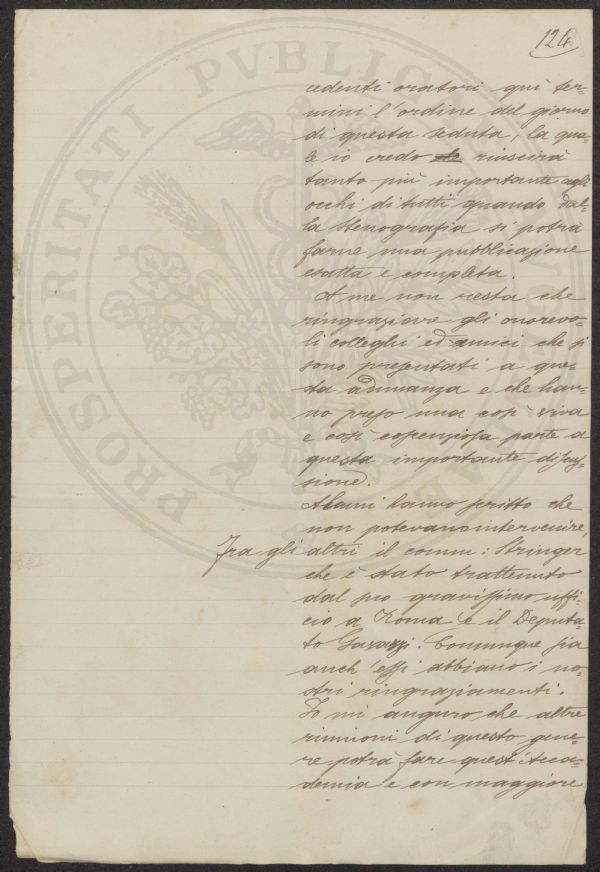 124
cedenti oratori quì ter-
mini l'ordine del giorno
di questa seduta, la qua-
le io credo riuscirà
tanto più importante agli
occhi di tutti quando dal-
la stenografia si potrà
farne una pubblicazione
esatta e completa.
A me non resta che
ringraziare gli onorevo-
li colleghi ed amici che si
sono presentati a que-
sta adunanza e che han-
no preso una così viva
e così coscenziosa parte a
questa importante discus-
sione.
Alcuni hanno scritto che
non potevano intervenire,
Fra gli altri il comm: Stringer
che è stato trattenuto
dal suo gravissimo uffi-
cio a Roma e il Deputa-
to Gavazzi. Comunque sia
anch'essi abbiano i no-
stri ringraziamenti.
Io mi auguro che altre
riunioni di questo gene-
re potrà fare quest'Acca-
demia e con maggiore
PROSPERITATI PVBLICAE